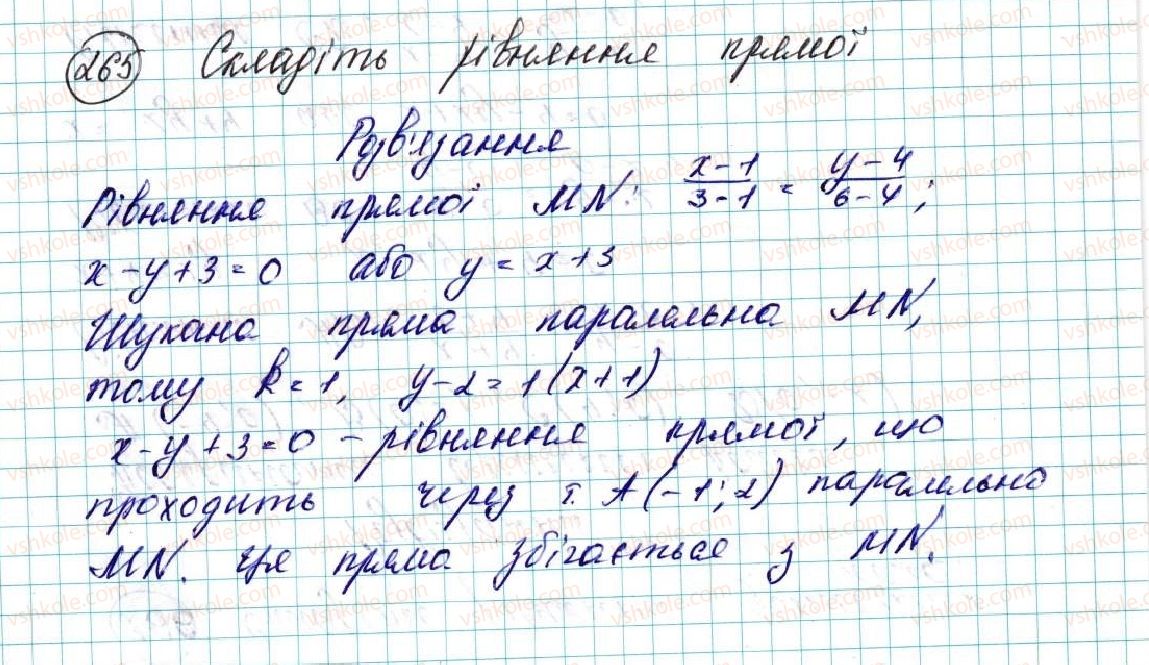 265 Складіть рівняння прямої
Розв'язання
Рівняння прямої MN: (x-1)/(3-1) = (y-4)/(6-4);
x-y+3=0 або y=x+3
Шукана пряма паралельна MN,
тому k=1, y-2=1(x+1)
x-y+3=0 - рівняння прямої, що
проходить через т. A(-1;2) паралельно
MN. Ця пряма збігається з MN.